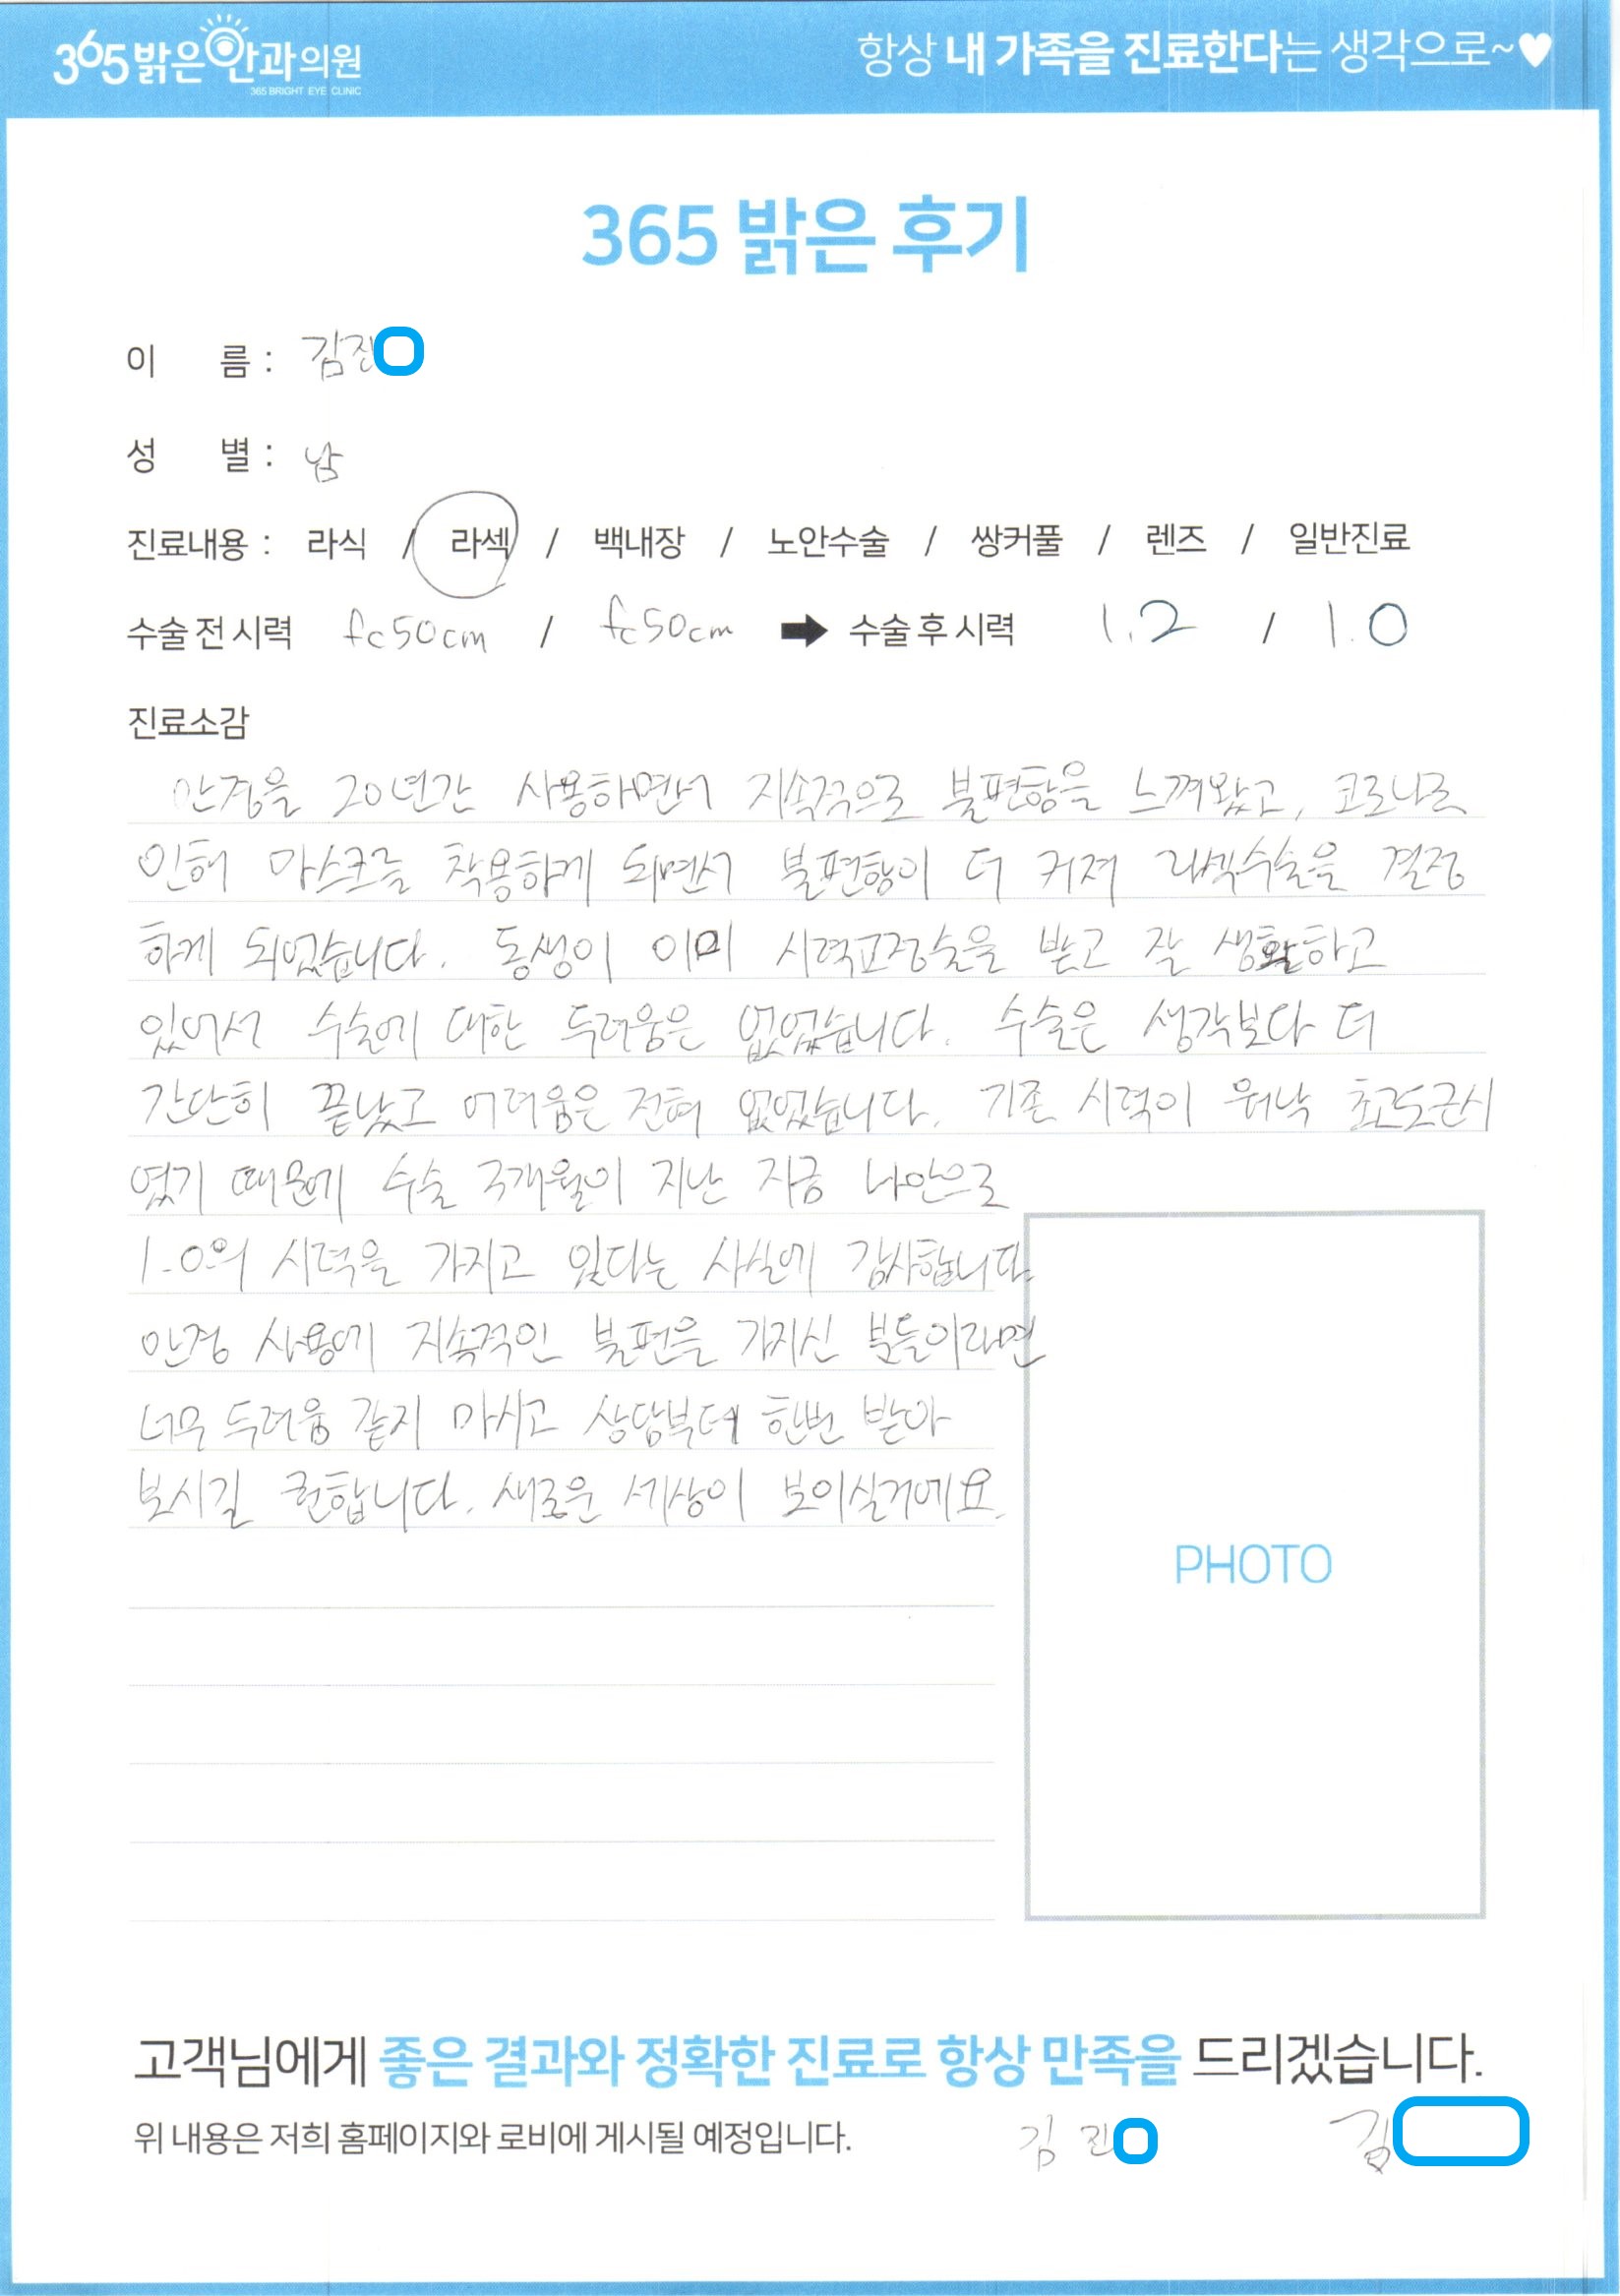 365밝은안과의원
365 BRIGHT EYE CLINIC
항상 내 가족을 진료한다는 생각으로~♥
365 밝은 후기
이 름 : 김진
성 별 : 남
진료내용 : 라식 / 라섹 / 백내장 / 노안수술 / 쌍커풀 / 렌즈 / 일반진료
수술 전 시력 fc50cm / fc50cm ➡ 수술 후 시력 1.2 / 1.0
진료소감
안경을 20년간 사용하면서 지속적으로 불편함을 느껴왔고, 코로나로
인해 마스크를 착용하게 되면서 불편함이 더 커져 라섹수술을 결정
하게 되었습니다. 동생이 이미 시력교정술을 받고 잘 생활하고
있어서 수술에 대한 두려움은 없었습니다. 수술은 생각보다 더
간단히 끝났고 어려움은 전혀 없었습니다. 기존 시력이 워낙 초고도근시
였기 때문에 수술 3개월이 지난 지금 나안으로
1.0의 시력을 가지고 있다는 사실에 감사합니다.
안경 사용에 지속적인 불편을 가지신 분들이라면
너무 두려움 갖지 마시고 상담부터 한번 받아
보시길 권합니다. 새로운 세상이 보이실거에요.
PHOTO
고객님에게 좋은 결과와 정확한 진료로 항상 만족을 드리겠습니다.
위 내용은 저희 홈페이지와 로비에 게시될 예정입니다. 김 진 김